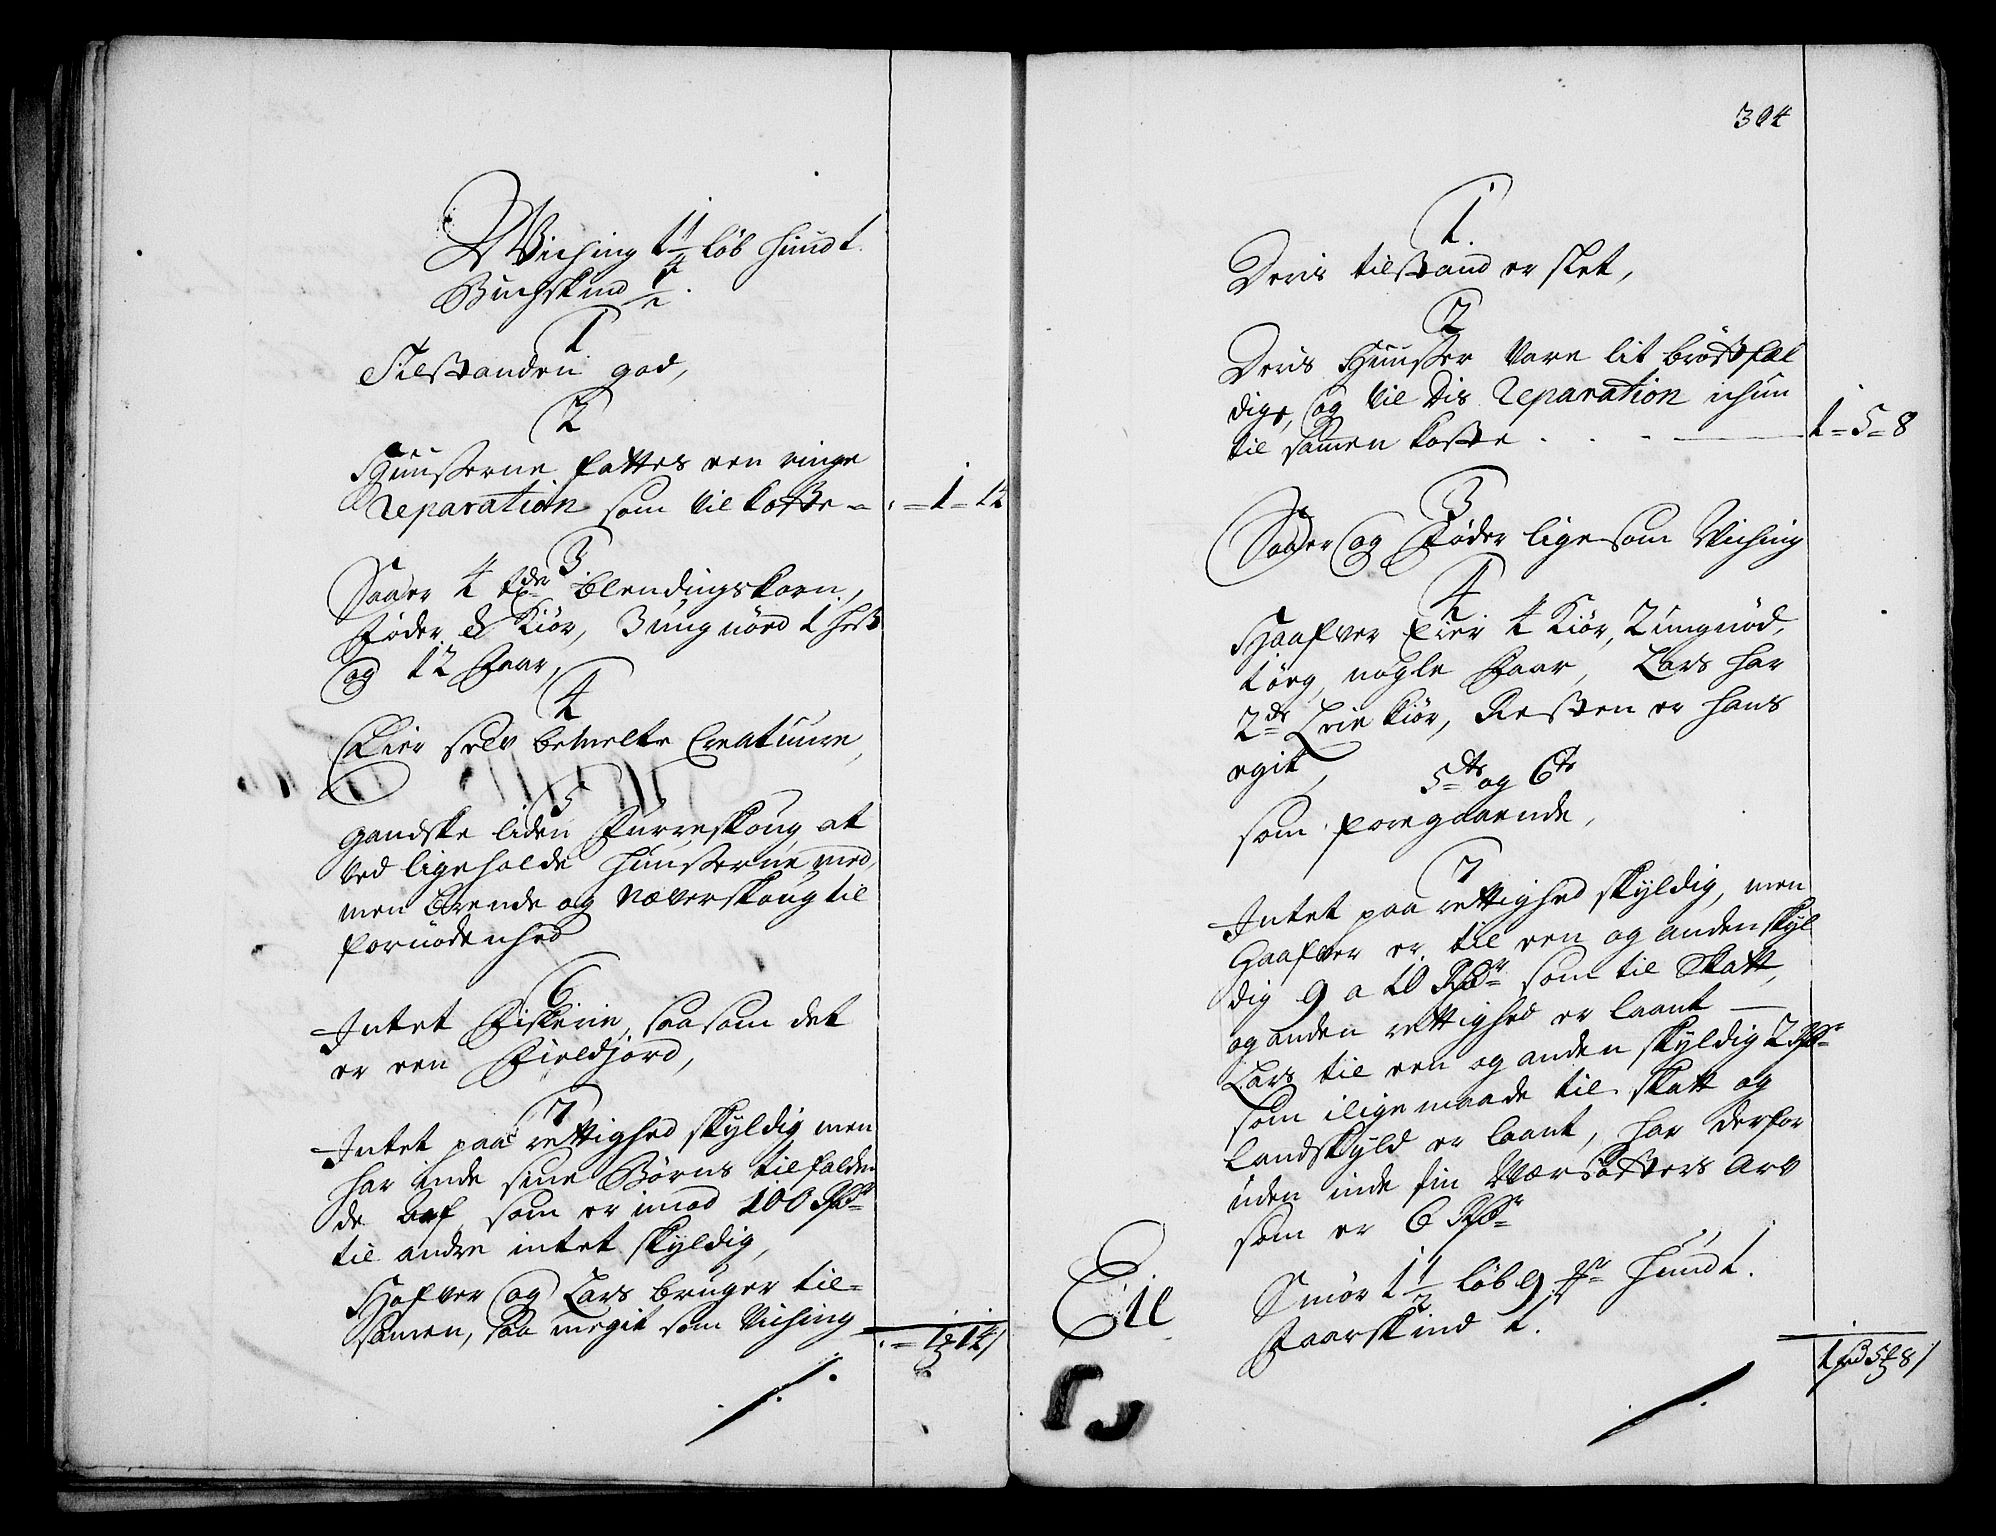 Viching 1 1/4 løb hund 1.
Buchskind 1/2.
1
Tilstanden god,
2
Huusserne fattes een ringe
Reparation som vil koste - . = 1 = 14
3
Saaer 4 tdr blendingskorn,
føder 8 kiør, 3 ungnød 1 hest
og 12 faar,
4
Eier selv bemelte Creatuure,
5
gandske liden Furreskoug at
ved lige holde huusserne med,
men Brende og Næverskoug til
fornødenhed
6
Intet Fiskerie, saasom det
er een Fieldjord,
7
Intet paa rettighed skyldig men
har inde sine Børns tilfalden
de arf som er imod 100 Rdr
til andre intet skyldig,
Hafver og Lars bruger til-
samen, saa meget som Viching
. = 1 = 14
304
1.
Deris tilstand er slet,
2
Deris Huusser vare lit brøstfæl
dige, og vil dis Reparation ichun
til samen koste . . . 1 = 5 = 8
3
Saaer og føder lige som Viching
4
Haafver Eier 4 kiør, 2 ungnød,
1 øeg nogle faar, Lars har
2de Leie kiør, Resten er hans
eget,
5te og 6te
som foregaaende,
7
Intet paa rettighed skyldig, men
Haafver er til een og anden skyl
dig 9 a 10 Rdr som til Skatt,
og anden rettighed er laant
Lars til een og anden skyldig 2 Rdr
som ilige maade til skatt og
landskyld er laant, har derfor
uden inde sin Værsøsters Arv
som er 6 Rdr
Eie Smør 1 1/2 løb 9 hund 1.
Faarskind 1.
1 rd 5 = 8